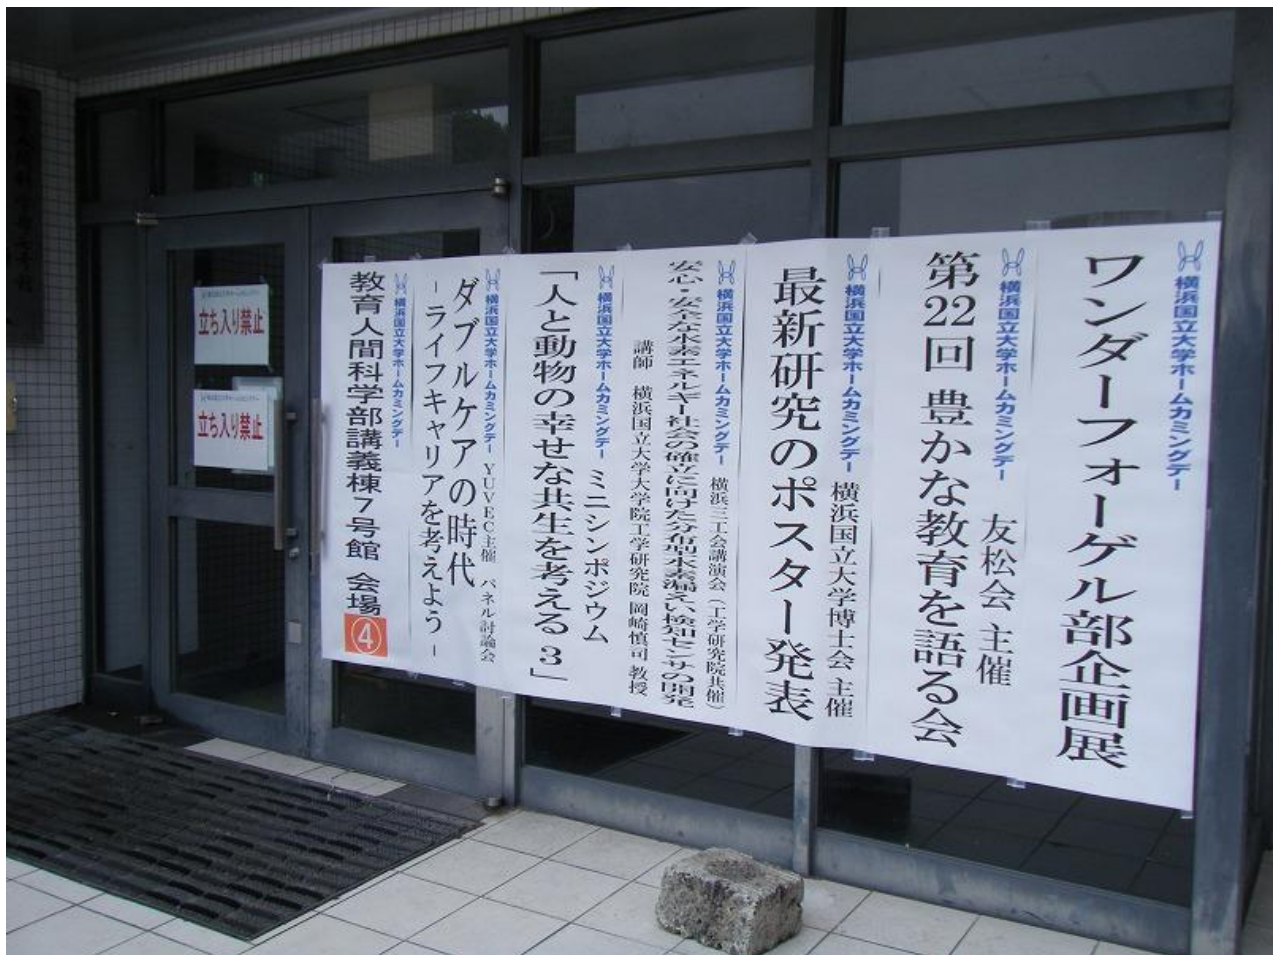 横浜国立大学ホームカミングデー
ワンダーフォーゲル部企画展
横浜国立大学ホームカミングデー
友松会 主催
第22回 豊かな教育を語る会
横浜国立大学ホームカミングデー
横浜国立大学博士会 主催
最新研究のポスター発表
横浜国立大学ホームカミングデー
横浜三工会講演会（工学研究院共催）
安心・安全な水素エネルギー社会の確立に向けた分布型水素漏えい検知センサの開発
講師 横浜国立大学大学院工学研究院 岡崎慎司 教授
横浜国立大学ホームカミングデー
ミニシンポジウム
「人と動物の幸せな共生を考える３」
横浜国立大学ホームカミングデー
YUVEC主催 パネル討論会
ダブルケアの時代
-ライフキャリアを考えよう-
横浜国立大学ホームカミングデー
教育人間科学部講義棟7号館 会場④
立ち入り禁止
立ち入り禁止